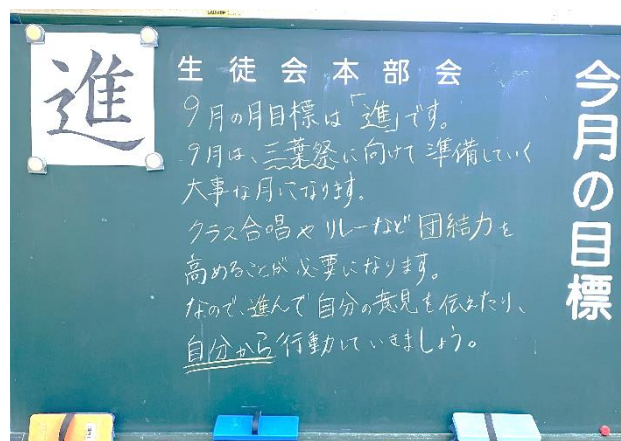 今月の目標
進
生徒会本部会
9月の月目標は「進」です。
9月は、三葉祭に向けて準備していく
大事な月になります。
クラス合唱やリレーなど団結力を
高めることが必要になります。
なので、進んで自分の意見を伝えたり、
自分から行動していきましょう。